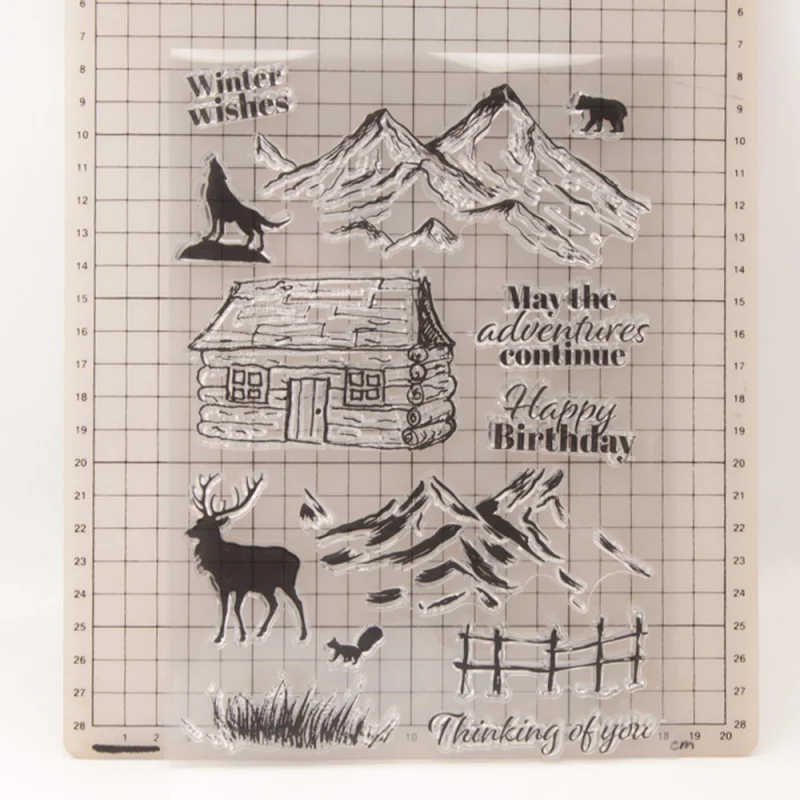 Winter
wishes
May the
adventures
continue
Happy
Birthday
Thinking of you
6 6
7 7
8 8
9 9
10 10
11 11
12 12
13 13
14 14
15 15
16 16
17 17
18 18
19 19
20 20
21 21
22 22
23 23
24 24
25 25
26 26
27 27
28 28
1 2 10 cm 19 20